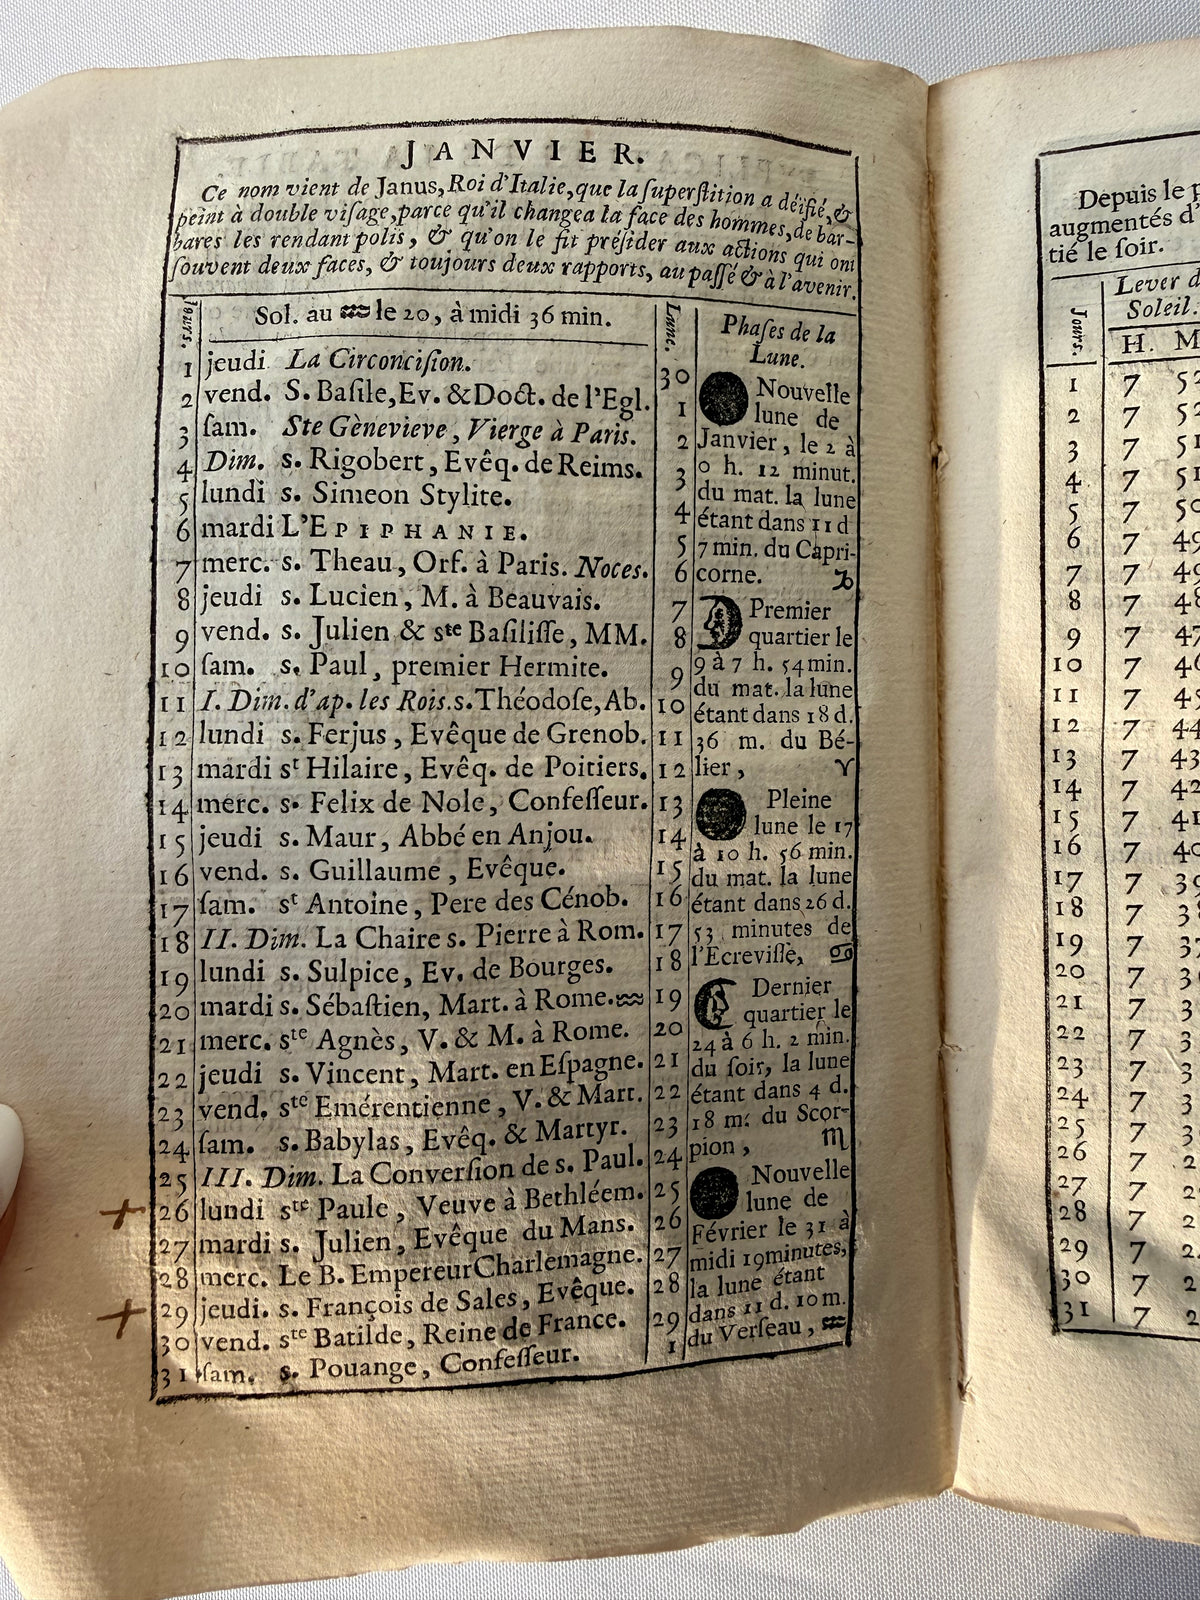 JANVIER.
Ce nom vient de Janus, Roi d'Italie, que la ſuperſtition a déifié, &
peint à double viſage, parce qu'il changea la face des hommes, de bar-
bares les rendant polis, & qu'on le fit préſider aux actions qui ont
ſouvent deux faces, & toujours deux rapports, au paſſé & à l'avenir.
Jours.
Sol. au ♒ le 20, à midi 36 min.
1 jeudi La Circonciſion.
2 vend. S. Baſile, Ev. & Doct. de l'Egl.
3 ſam. Ste Gènevieve, Vierge à Paris.
4 Dim. s. Rigobert, Evêq. de Reims.
5 lundi s. Simeon Stylite.
6 mardi L'EPIPHANIE.
7 merc. s. Theau, Orf. à Paris. Noces.
8 jeudi s. Lucien, M. à Beauvais.
9 vend. s. Julien & ste Baſiliſſe, MM.
10 ſam. s. Paul, premier Hermite.
11 I. Dim. d'ap. les Rois. s. Théodoſe, Ab.
12 lundi s. Ferjus, Evêque de Grenob.
13 mardi st Hilaire, Evêq. de Poitiers.
14 merc. s. Felix de Nole, Confeſſeur.
15 jeudi s. Maur, Abbé en Anjou.
16 vend. s. Guillaume, Evêque.
17 ſam. st Antoine, Pere des Cénob.
18 II. Dim. La Chaire s. Pierre à Rom.
19 lundi s. Sulpice, Ev. de Bourges.
20 mardi s. Sébaſtien, Mart. à Rome. ♒
21 merc. ste Agnès, V. & M. à Rome.
22 jeudi s. Vincent, Mart. en Eſpagne.
23 vend. ste Emérentienne, V. & Mart.
24 ſam. s. Babylas, Evêq. & Martyr.
25 III. Dim. La Converſion de s. Paul.
+ 26 lundi ste Paule, Veuve à Bethléem.
27 mardi s. Julien, Evêque du Mans.
28 merc. Le B. Empereur Charlemagne.
+ 29 jeudi. s. François de Sales, Evêque.
30 vend. ste Batilde, Reine de France.
31 ſam. s. Pouange, Confeſſeur.
Lune.
30
1
2
3
4
5
6
7
8
9
10
11
12
13
14
15
16
17
18
19
20
21
22
23
24
25
26
27
28
29
1
Phaſes de la
Lune.
Nouvelle
lune de
Janvier, le 2 à
0 h. 12 minut.
du mat. la lune
étant dans 11 d
7 min. du Capri-
corne. ♑
Premier
quartier le
9 à 7 h. 54 min.
du mat. la lune
étant dans 18 d.
36 m. du Bé-
lier, ♈
Pleine
lune le 17
à 10 h. 56 min.
du mat. la lune
étant dans 26 d.
53 minutes de
l'Ecreviſſe, ♋
Dernier
quartier le
24 à 6 h. 2 min.
du ſoir, la lune
étant dans 4 d.
18 m. du Scor-
pion, ♏
Nouvelle
lune de
Février le 31 à
midi 19 minutes,
la lune étant
dans 11 d. 10 m.
du Verſeau, ♒
Depuis le
augmentés d'
tié le ſoir.
Jours.
Lever d
Soleil.
H. M
1 7 52
2 7 52
3 7 51
4 7 51
5 7 50
6 7 49
7 7 49
8 7 48
9 7 47
10 7 46
11 7 45
12 7 44
13 7 43
14 7 42
15 7 41
16 7 40
17 7 39
18 7 38
19 7 37
20 7 36
21 7 3
22 7 3
23 7 3
24 7 3
25 7 3
26 7 2
27 7 2
28 7 2
29 7 2
30 7 2
31 7 2